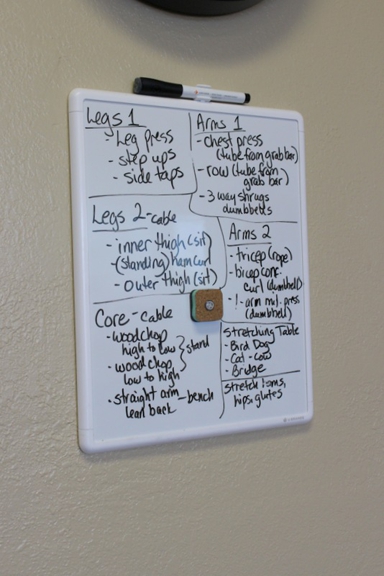 Legs 1
- Leg press
- step ups
- side taps
Arms 1
- chest press
(tube from grab bar)
- row (tube from
grab bar)
- 3 way shrugs
dumbbells
Legs 2 - cable
- inner thigh (sit)
- (standing) ham curl
- outer thigh (sit)
Arms 2
- tricep (rope)
- bicep conc.
curl (dumbbell)
- 1-arm mil. press
(dumbbell)
Core - cable
- woodchop
high to low } stand
- woodchop
low to high
- straight arm - bench
lean back
Stretching Table
- Bird Dog
- Cat - cow
- Bridge
stretch hams,
hips, glutes